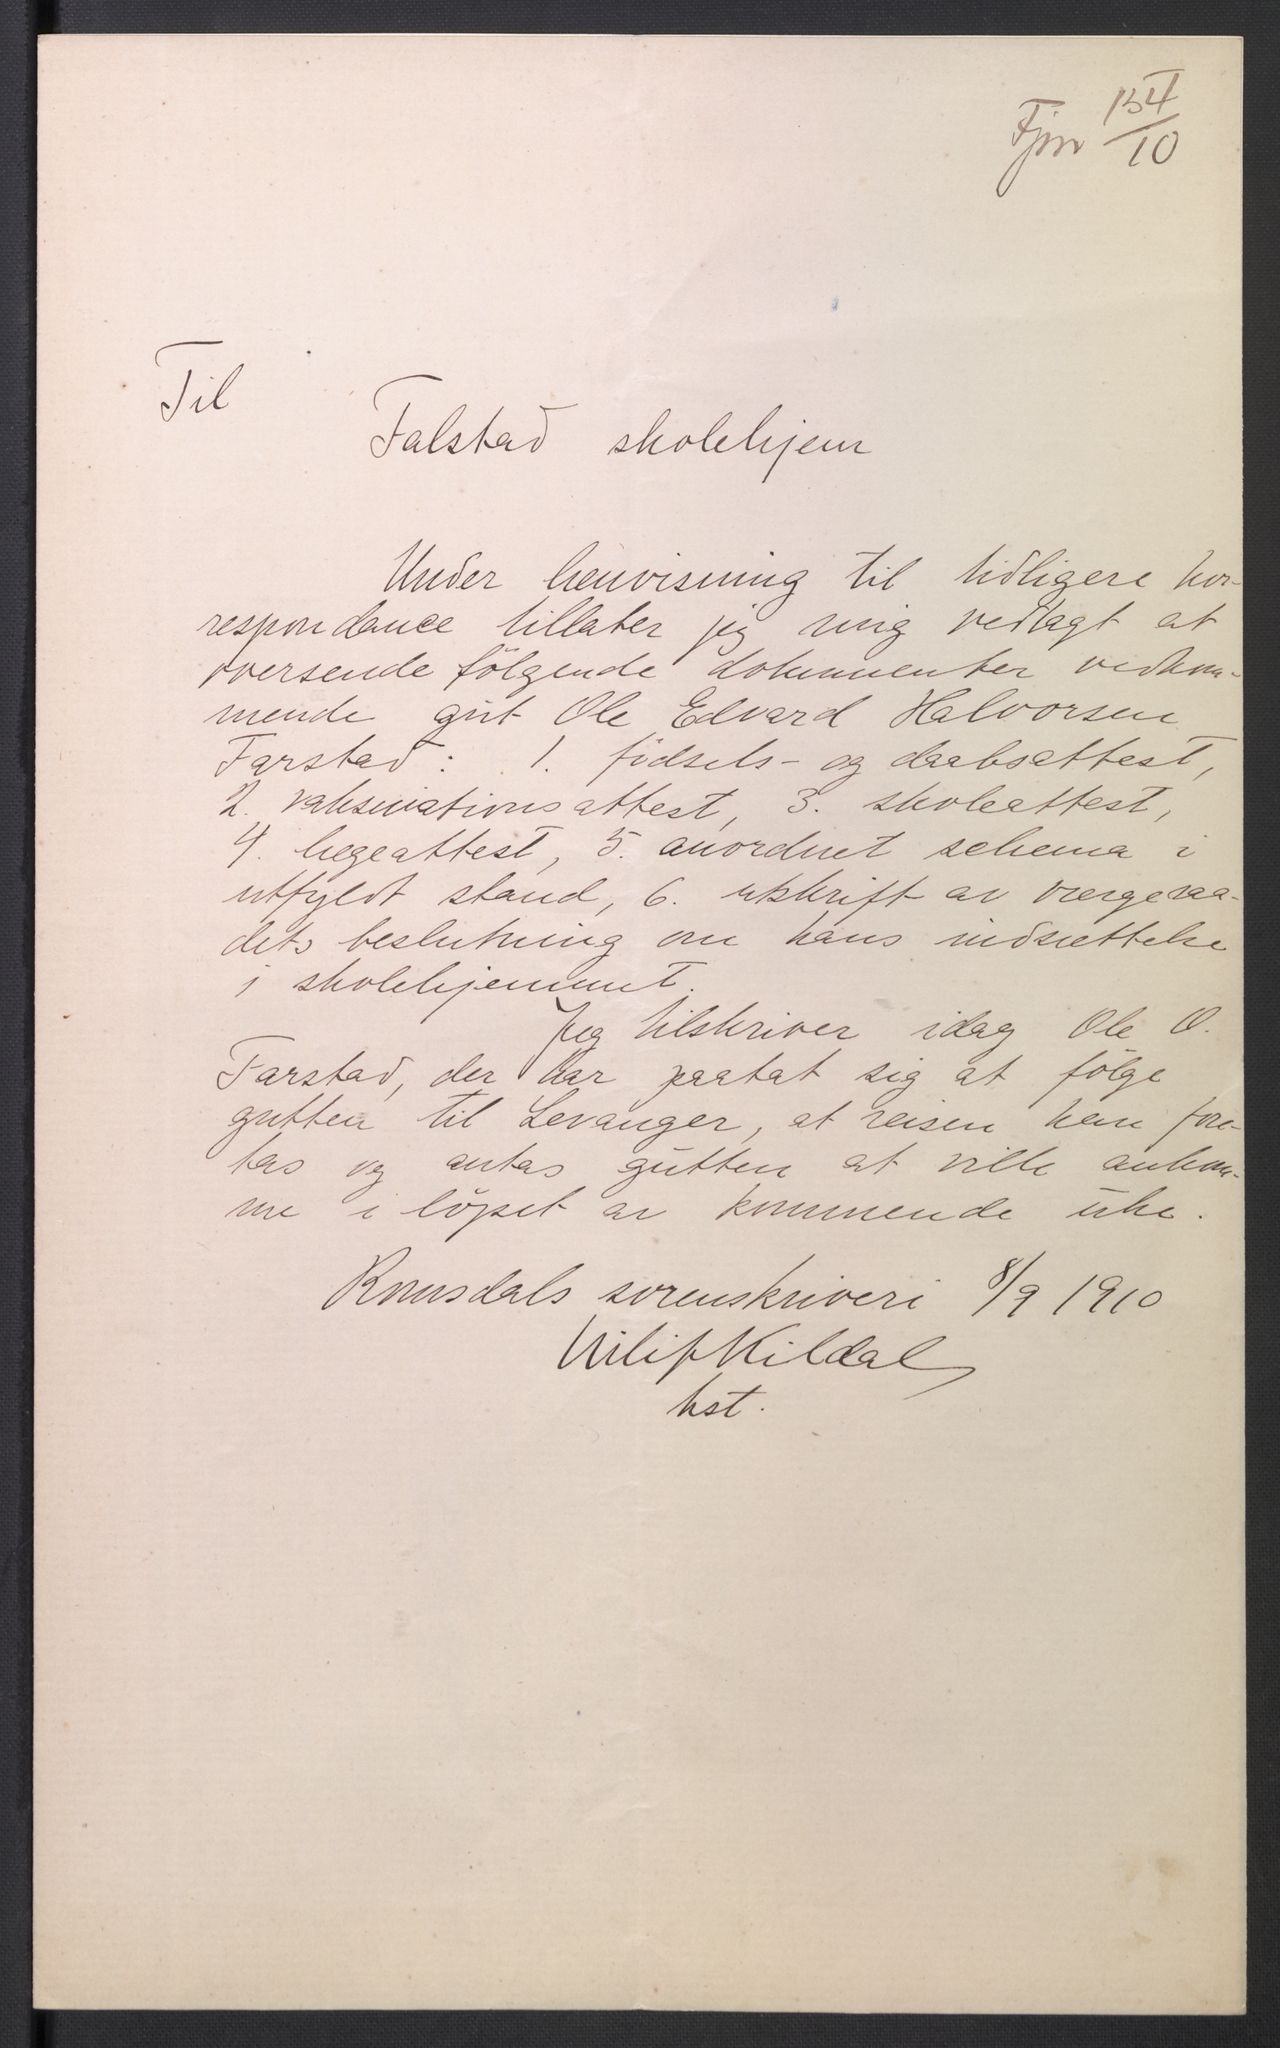 Fjnr 134/10
Til
Falstad skolehjem
Under henvisning til tidligere kor-
respondance tillater jeg mig vedlagt at
oversende følgende dokumenter vedkom-
mende gut Ole Edvard Halvorsen
Farstad: 1. födsels- og daabsattest,
2. vaksinationsattest, 3. skoleattest,
4. lægeattest, 5. anordnet schema i
utfyldt stand, 6. utskrift av vergeraa-
dets beslutning om hans indsættelse
i skolehjemmet.
Jeg tilskriver idag Ole O.
Farstad, der har paatat sig at fölge
gutten til Levanger, at reisen kan fore-
tas og antas gutten at ville ankom-
me i löpet av kommende uke.
Romsdals sorenskriveri 8/9 1910
Kildal
kst.